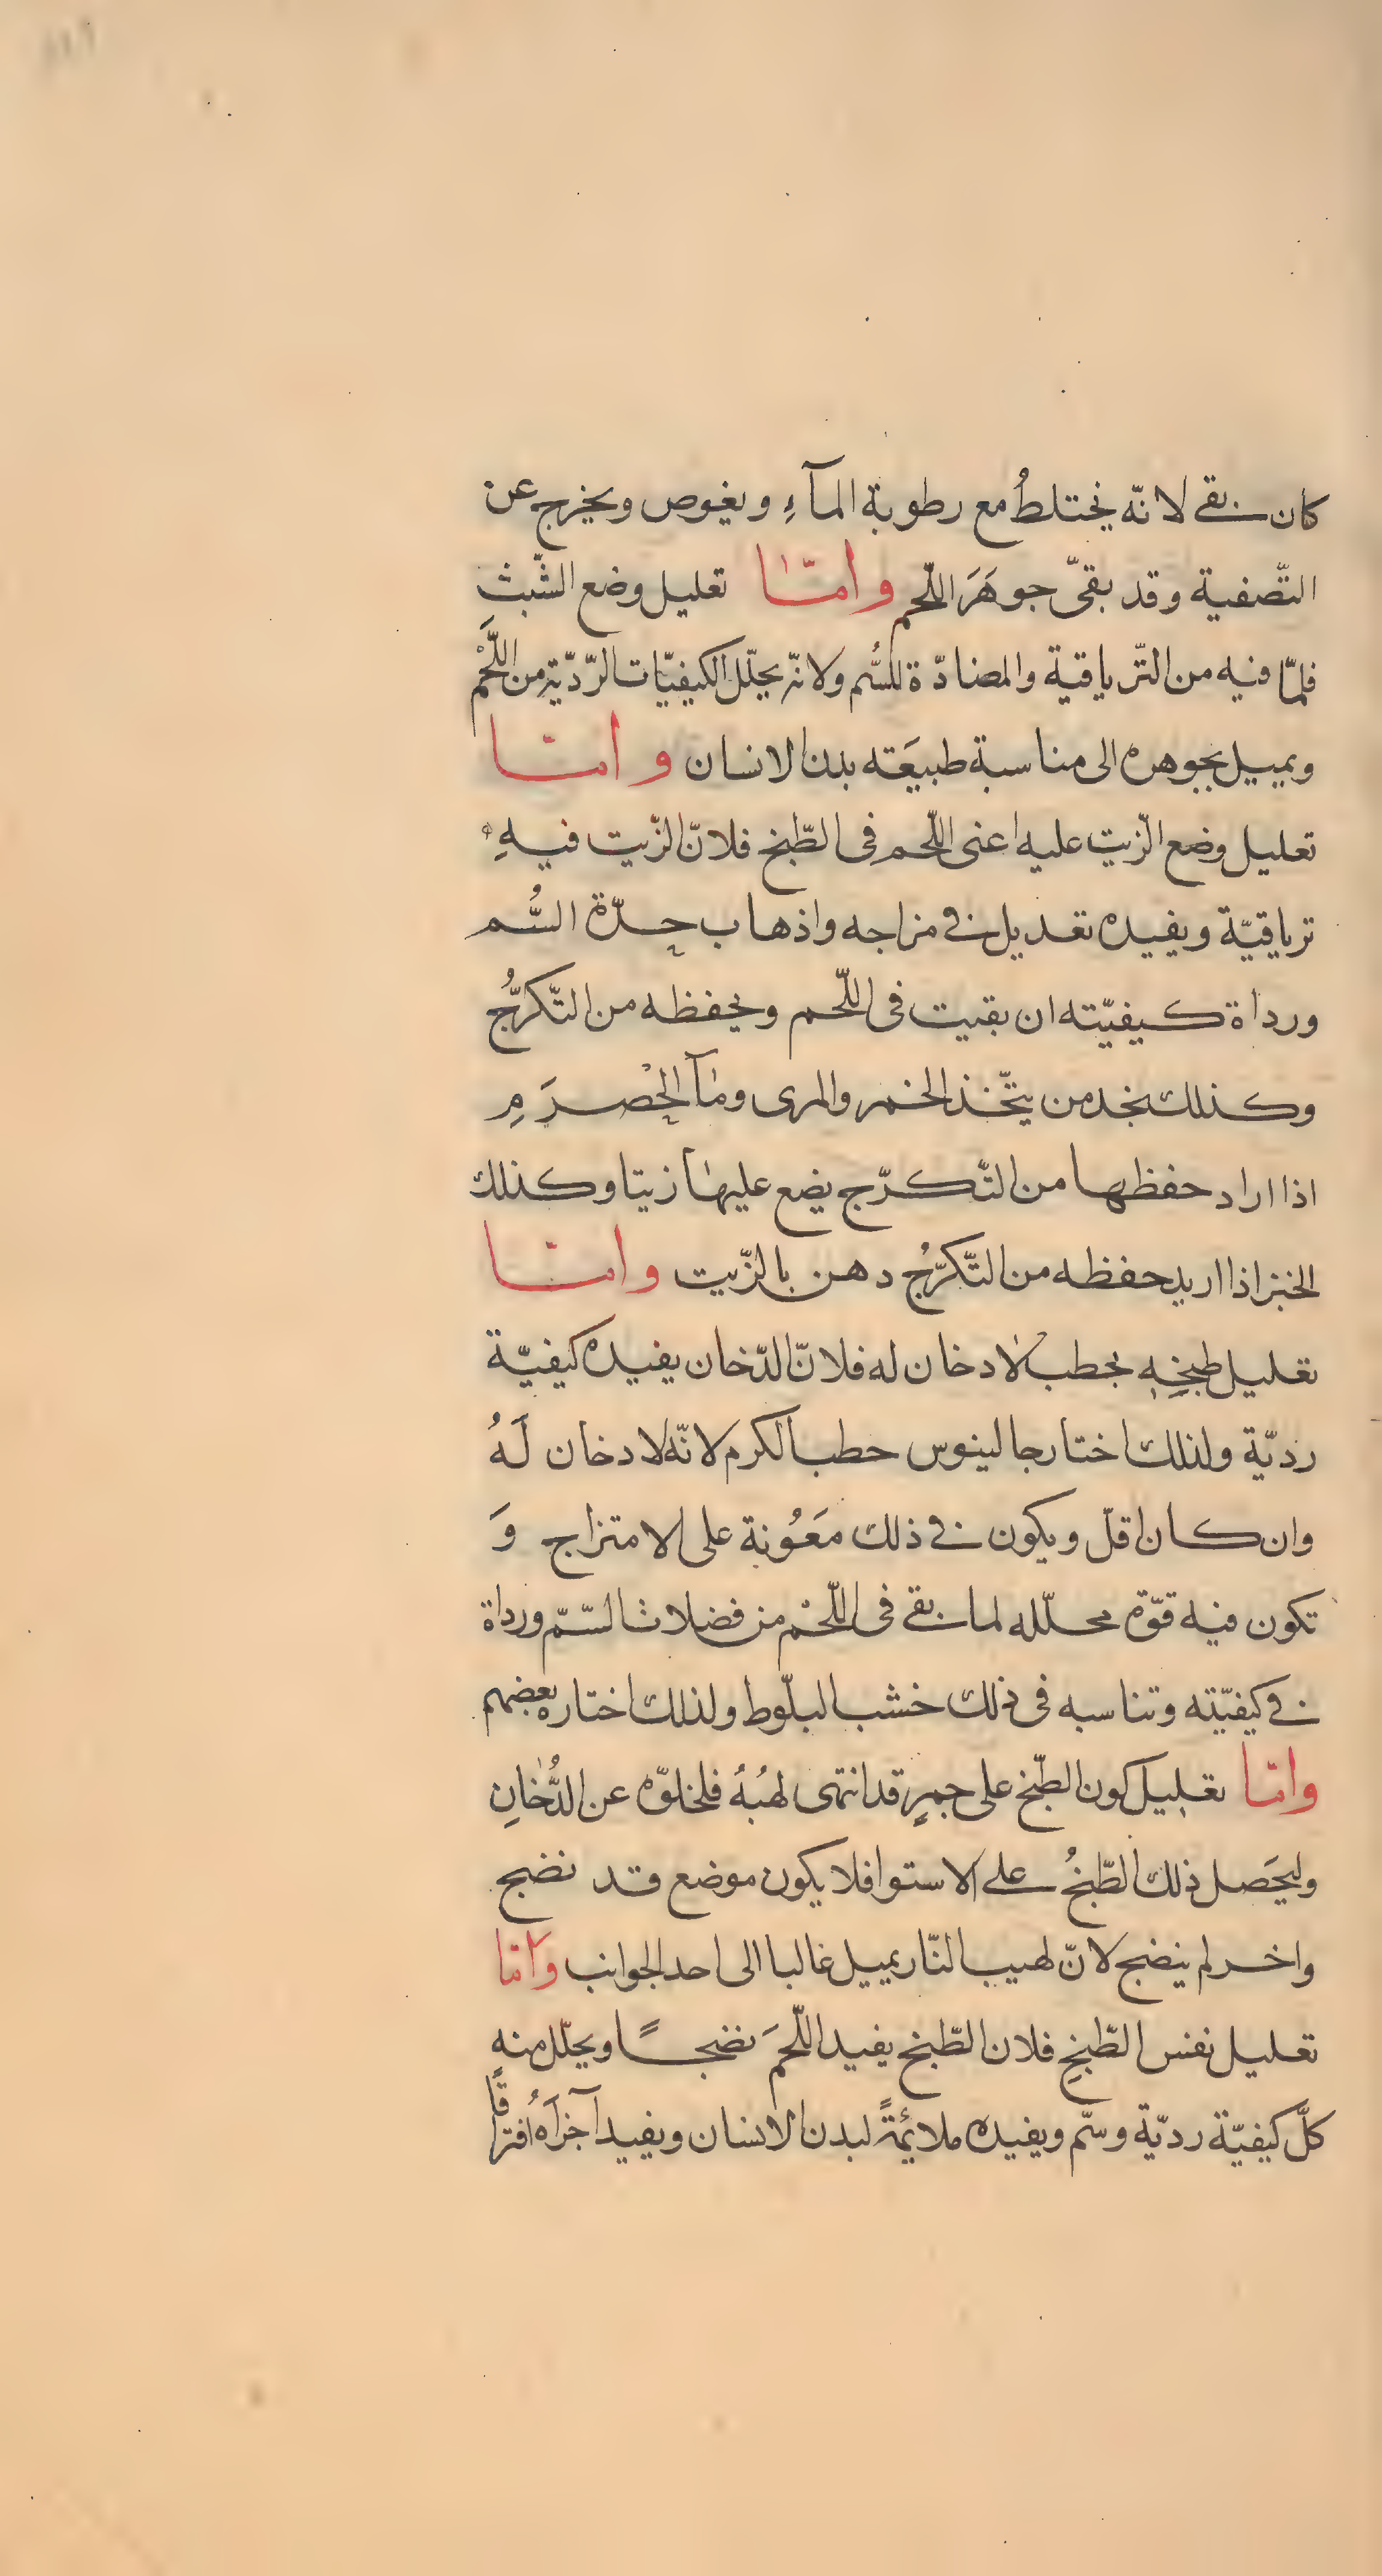 كان بقى لانّه يختلطُ مع رطوبة المآءِ ويغوص ويخرج عن
التّصفية وقد بقىّ جوهَرَ اللّحم وامّا تعليل وضع الشّبث
فلمّا فيه من التّرياقية والمضادّة للسُّم ولانّه يحلّل الكيفيّات الرّديّة من اللَّحْم
ويميل بجوهره الى مناسبة طبيعَته بدن الانسان وامّا
تعليل وضع الزّيت عليه اعنى اللّحم فى الطّبخ فلانّ الزّيت فيهِ
ترياقيّة ويفيده تعديل فى مزاجه واذهاب حدّة السُّم
ورداة كيفيّته ان بقيت فى اللّحم ويحفظه من التّكرُّج
وكذلك نجد من يتّخذ الخمر والمرى ومآ الحْصرَمِ
اذا اراد حفظها من التّكرّج يضع عليها زيتا وكذلك
الخبز اذا اريد حفظه من التّكرُّج دهن بالزّيت وامّا
تعليل طبخِهِ بحطب لا دخان له فلانّ الدّخان يفيده كيفيّة
رديّة ولذلك اختار جالينوس حطب الكرم لانّه لا دخان لَهُ
وان كان اقلّ ويكون فى ذلك مَعُونة على الامتزاج وَ
تكون فيه قوّة محلّله لما بقى فى اللّحْم من فضلات السّمّ ورداة
فى كيفيّته وتناسبه فى ذلك خشب البلّوط ولذلك اختاره بعضهم
وامّا تعليل كون الطّبخ على جمرٍ قد انتهى لهبُهُ فلخلوّه عن الدُّخانِ
وليحَصل ذلك الطّبخُ على الاستوا فلا يكون موضع قد نضج
واخر لم ينضج لانّ لهيب النّار يميل غالبا الى احد الجوانب وَامّا
تعليل نفس الطّبخِ فلان الطّبخ يفيد اللّحمَ نضجًا ويحلّل منه
كلَّ كيفيّة رديّة وسّم ويفيده ملائمةً لبدن الانسان ويفيد آجزآهُ افتراقًا